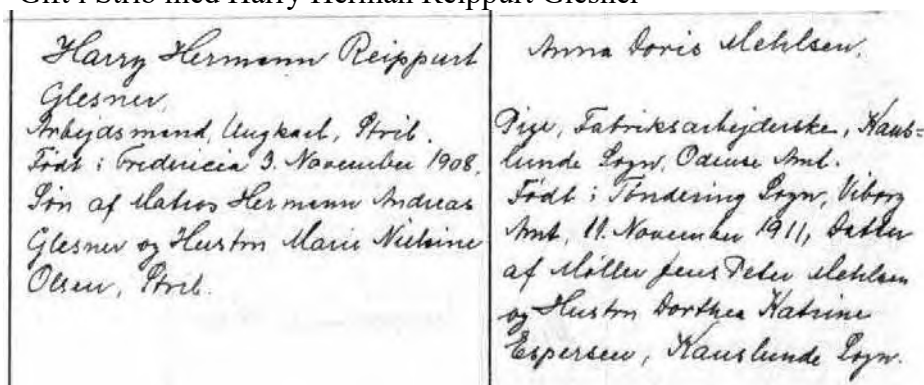 Gift i Strib med Harry Herman Reippurt Glesner
Harry Hermann Reippurt
Glesner,
Arbejdsmand, Ungkarl, Strib.
Født i Fredericia 3. November 1908,
Søn af Matros Hermann Andreas
Glesner og Hustru Marie Nielsine
Olsen, Strib.
Anna Doris Mehlsen,
Pige, Fabriksarbejderske, Kaus=
lunde Sogn, Odense Amt.
Født i Tøndering Sogn, Viborg
Amt, 11. November 1911, Datter
af Møller Jens Peter Mehlsen
og Hustru Dorthea Katrine
Espersen, Kauslunde Sogn.